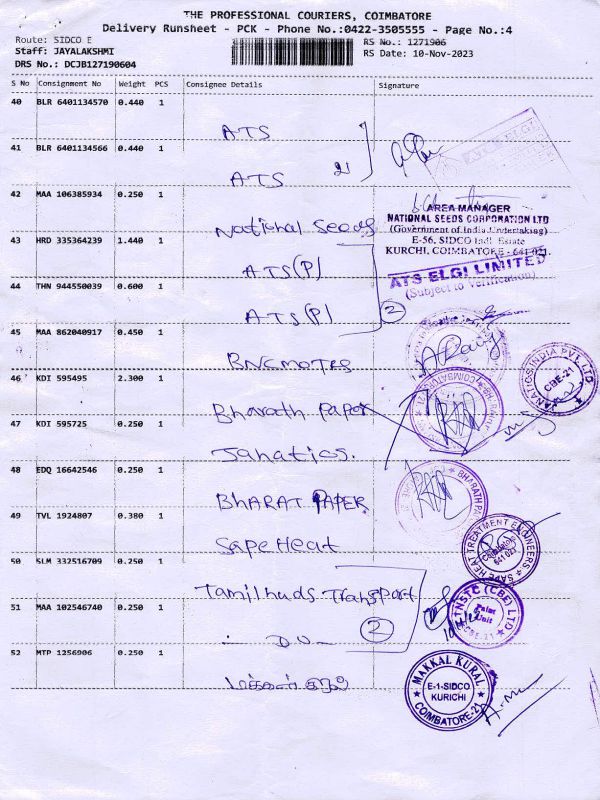 THE PROFESSIONAL COURIERS, COIMBATORE
Delivery Runsheet - PCK - Phone No.:0422-3505555 - Page No.:4
Route: SIDCO E
RS No.: 1271906
Staff: JAYALAKSHMI
RS Date: 10-Nov-2023
DRS No.: DCJB127190604
S No Consignment No Weight PCS Consignee Details Signature
40 BLR 6401134570 0.440 1
ATS
41 BLR 6401134566 0.440 1
ATS
ATS ELGI
42 MAA 106385934 0.250 1
National Seeds
AREA MANAGER
NATIONAL SEEDS CORPORATION LTD
(Government of India Undertaking)
E-56, SIDCO Indl. Estate
KURCHI, COIMBATORE - 641 021.
43 HRD 335364239 1.440 1
ATS(P)
ATS ELGI LIMITED
(Subject to Verification)
44 THN 944550039 0.600 1
ATS(P)
2
45 MAA 862040917 0.450 1
46 KDI 595495 2.300 1
Bharath Paper
JANATICS INDIA PVT. LTD
CBE-21
47 KDI 595725 0.250 1
Janatics.
48 EDQ 16642546 0.250 1
BHARAT PAPER
49 TVL 1924807 0.380 1
Sape Heat
SAPE HEAT TREATMENT ENGINEERS
Coimbatore
641 021
50 SLM 332516709 0.250 1
Tamilnuds Transport
51 MAA 102546740 0.250 1
- DU -
2
TNSTC (CBE) LTD
Unit
CBE.21
52 MTP 1256906 0.250 1
மக்கள் குரல்
MAKKAL KURAL
E-1-SIDCO
KURICHI
COIMBATORE-21